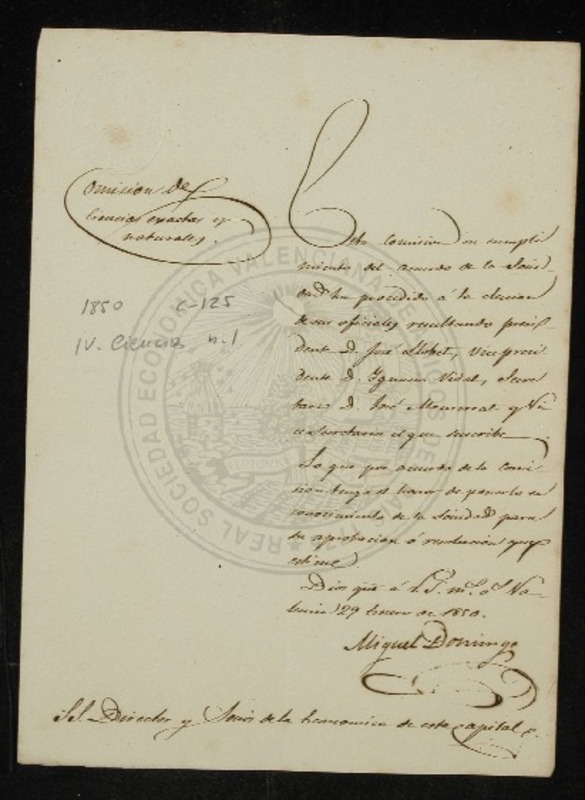 Comision de
Ciencias exactas y
naturales.
1850 C-125
IV. Ciencias n.1
Esta comision en cumpli
miento del acuerdo de la Socie-
dad ha procedido á la eleccion
de sus oficiales resultando presi-
dente D. José Llobet, vicepresi
dente D. Ignacio Vidal, Secre
tario D. José Monserrat y Vi
cesecretario el que suscribe.
Lo que por acuerdo de la Comi-
sion tengo el honor de ponerlo en
conocimiento de la Sociedad para
su aprobacion ó resolucion que
estime.
Dios gũe á V.S. m.s a.s Va-
lencia 29 Enero de 1850.
Miguel Domingo
SS. Director y Socios de la Economica de esta capital
REAL SOCIEDAD ECONOMICA VALENCIANA DE AMIGOS DEL PAIS